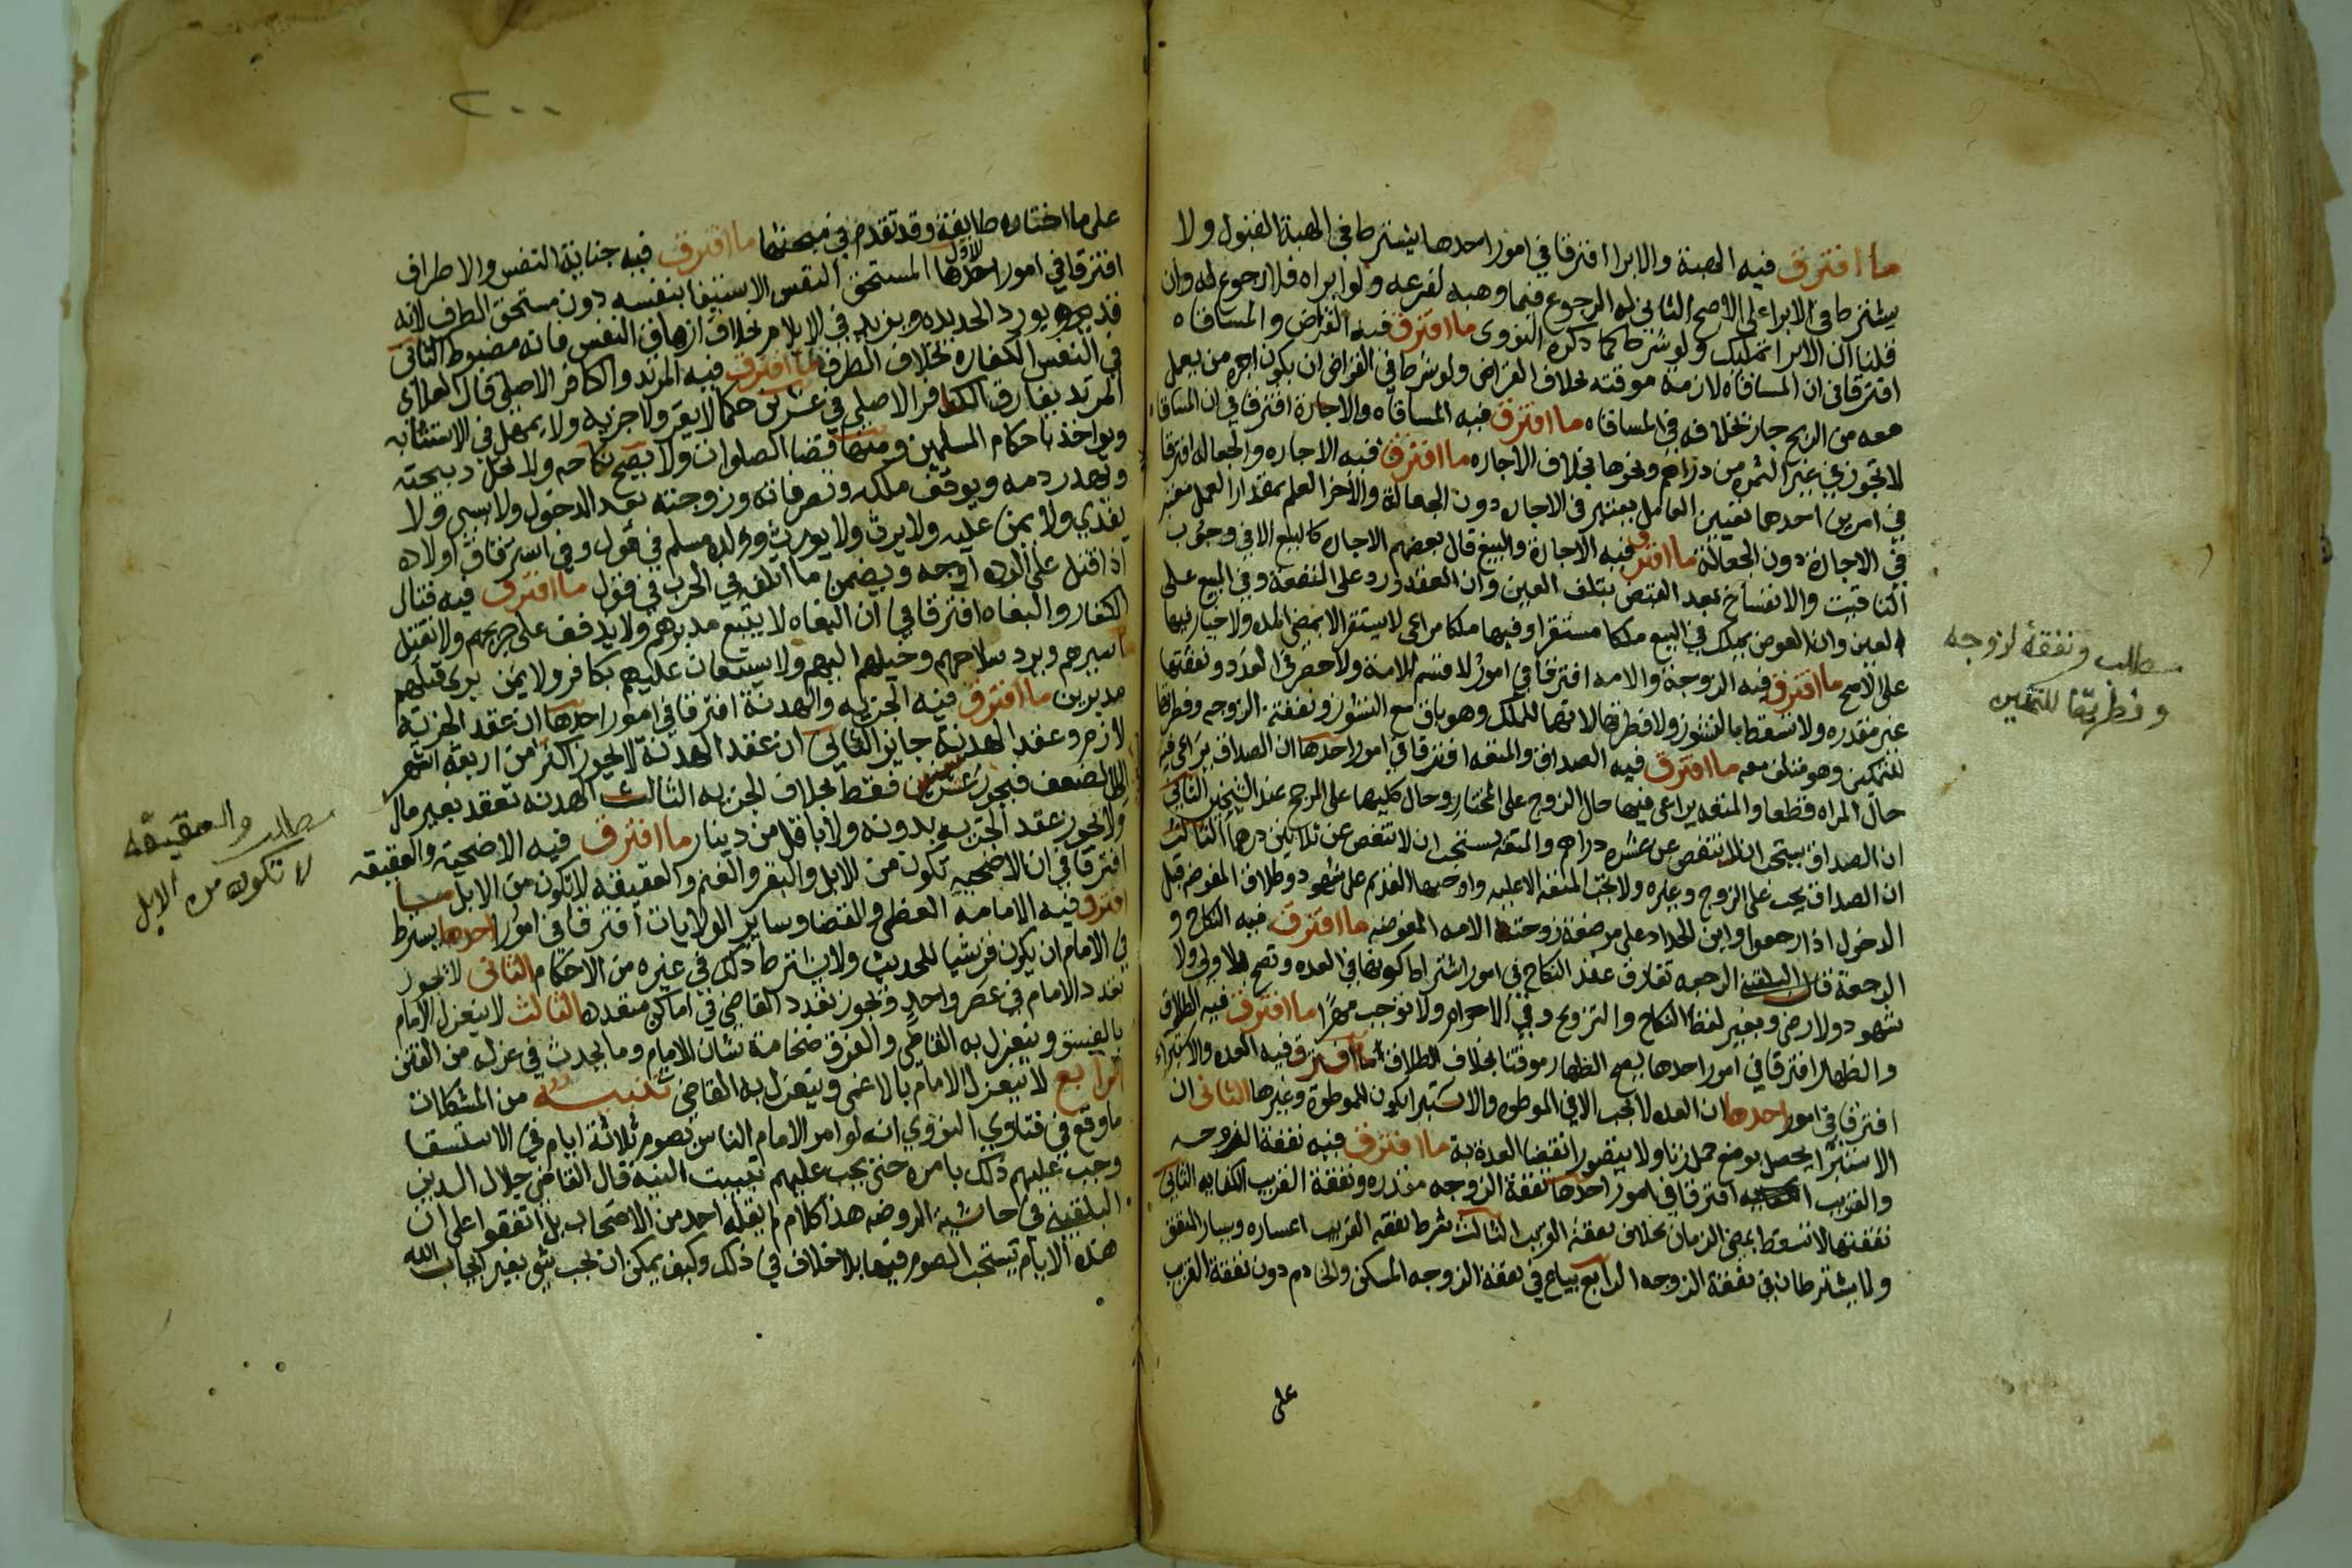 ما افترق فيه الهبة والابرا افترقا في امور احدها يشترط في الهبة القبول ولا
يشترط في الابرا على الاصح الثاني له الرجوع فيما وهبه لفرعه ولو ابراه فلا رجوع له وان
قلنا ان الابرا تمليك ولو شرطا كما ذكره النووى ما افترق فيه القراض والمساقاه
افترقا في ان المساقاه لازمة موقته بخلاف القراض ولو شرط في القراض ان يكون اجره من يعمل
معه من الربح جاز بخلافه في المساقاه ما افترق فيه المساقاه والاجارة افترقا في ان المساقاه
لا تجوز على غير الثمره من دراهم ونحوها بخلاف الاجاره ما افترق فيه الاجاره والجعاله افترقا
في امرين احدهما تعيين العامل يعتبر في الاجاره دون الجعالة والاخر العلم بمقدار العمل معتبر
في الاجارة دون الجعالة ما افترق فيه الاجارة والبيع قال بعضهم الاجاره كالبيع الا في وجوب
التاقيت والانفساخ بعد القبض بتلف العين وان العقد ورد على المنفعة وفي البيع على
العين وان العوض يملك في البيع ملكا مستقرا وفيها ملكا مراعى لا يستقر الا بمضي المده ولا خيار فيها
على الاصح ما افترق فيه الزوجة والامه افترقا في امور لا قسم للامة ولا حصر في العدد ونفقتها
غير مقدره ولا تسقط بالنشوز ولا فطرتها لانها للملك وهو باق مع النشوز ونفقة الزوجه وفطرتها
للتمكين وهو منتف معه ما افترق فيه الصداق والمتعه افترقا في امور احدها ان الصداق يراعى فيه
حال المراه قطعا والمتعه يراعى فيها حال الزوج على المختار وحال كليهما على المرجح عند الشيخين الثاني
ان الصداق يستحب ان لا ينقص عن عشره دراهم والمتعه يستحب ان لا تنقص عن ثلاثين درهما الثالث
ان الصداق يجب على الزوج وغيره ولا تجب المتعة الا عليه واوجبها القديم على شهود طلاق المفوضه قبل
الدخول اذا رجعوا وابن الحداد على مرضعة زوجته الامه المفوضه ما افترق فيه النكاح و
الرجعة قال البلقيني الرجعه تفارق عقد النكاح في امور اشتراط كونها في العده وتصح بلا ولي ولا
شهود ولا رضى وبغير لفظ النكاح والتزويج وفي الاحرام ولا توجب مهرا ما افترق فيه الطلاق
والظهار افترقا في امور احدها يصح الظهار موقتا بخلاف الطلاق ما افترق فيه العده والاستبراء
افترقا في امور احدها ان العده لا تجب الا في الموطوه والاستبرا يكون للموطوة وغيرها الثاني ان
الاستبرا يحصل بوضع حمل زنا ولا يتصور انقضا العدة به ما افترق فيه نفقة الزوجه
والقريب افترقا في امور احدها نفقة الزوجه مقدره ونفقة القريب الكفايه الثاني
نفقتها لا تسقط بمضي الزمان بخلاف نفقة القريب الثالث شرط نفقه القريب اعساره ويسار المنفق
ولا يشترطان في نفقة الزوجه الرابع يباع في نفقة الزوجه المسكن والخادم دون نفقة القريب
على
مطلب ونفقة لزوجه
وفطرتها للتمكين
٢٠٠
على ما اختاره طايفة وقد تقدم في مبحثها ما افترق فيه جناية النفس والاطراف
افترقا في امور احدها الاول المستحق النفس الاستيفا بنفسه دون مستحق الطرف لانه
قد يردد الحديده ويزيد في الايلام بخلاف ازهاق النفس فانه مضبوط الثاني
في النفس الكفاره بخلاف الطرف ما افترق فيه المرتد والكافر الاصلي قال العلائي
المرتد يفارق الكافر الاصلي في عشرين حكما لا يقر ولا جزيه ولا يمهل في الاستتابه
ويواخذ باحكام المسلمين ومنها قضا الصلوات ولا يصح نكاحه ولا تحل ذبيحته
ويهدر دمه ويوقف ملكه وتصرفاته وزوجته بعد الدخول ولا يسبى ولا
يفدي ولا يمن عليه ولا يرث ولا يورث وولده مسلم في قول وفي استرقاق اولاده
اذا قتل على الرده اوجه ويضمن ما اتلفه في الحرب في قول ما افترق فيه قتال
الكفار والبغاه افترقا في ان البغاه لا يتبع مدبرهم ولا يدفف على جريحهم ولا يقتل
اسيرهم ويرد سلاحهم وخيلهم اليهم ولا يستعان عليهم بكافر ولا بمن يرى قتلهم
مدبرين ما افترق فيه الجزيه والهدنة افترقا في امور احدها ان عقد الجزية
لازم وعقد الهدنة جايز الثاني ان عقد الهدنة لا يجوز اكثر من اربعة اشهر
الا لضعف فيجوز عشر سنين فقط بخلاف الجزيه الثالث الهدنه تعقد بغير مال
ولا يجوز عقد الجزيه بدونه ولا باقل من دينار ما افترق فيه الاضحيه والعقيقه
افترقا في ان الاضحيه تكون من الابل والبقر والغنم والعقيقه لا تكون من الابل ما
افترق فيه الامامة العظمى والقضا وساير الولايات افترقا في امور احدها يشترط
في الامام ان يكون قرشيا للحديث ولا يشترط ذلك في غيره من الاحكام الثاني لا يجوز
تعدد الامام في عصر واحد ويجوز تعدد القاضي في اماكن متعدده الثالث لا ينعزل الامام
بالفسق وينعزل به القاضي والفرق ضخامة شان الامام وما يحدث في عزله من الفتن
الرابع لا ينعزل الامام بالاغمى وينعزل به القاضي تنبيه من المشكلات
ما وقع في فتاوي النووي انه لو امر الامام الناس بصوم ثلاثة ايام في الاستسقا
وجب عليهم ذلك بامره حتى يجب عليهم تبييت النيه قال القاضي جلال الدين
البلقيني في حاشية الروضه هذا كلام لم يقله احد من الاصحاب بل اتفقوا على ان
هذه الايام يستحب الصوم فيها بلا خلاف في ذلك وكيف يمكن ان يجب شي بغير ايجاب الله
مطلب والعقيقه
لا تكون من الابل